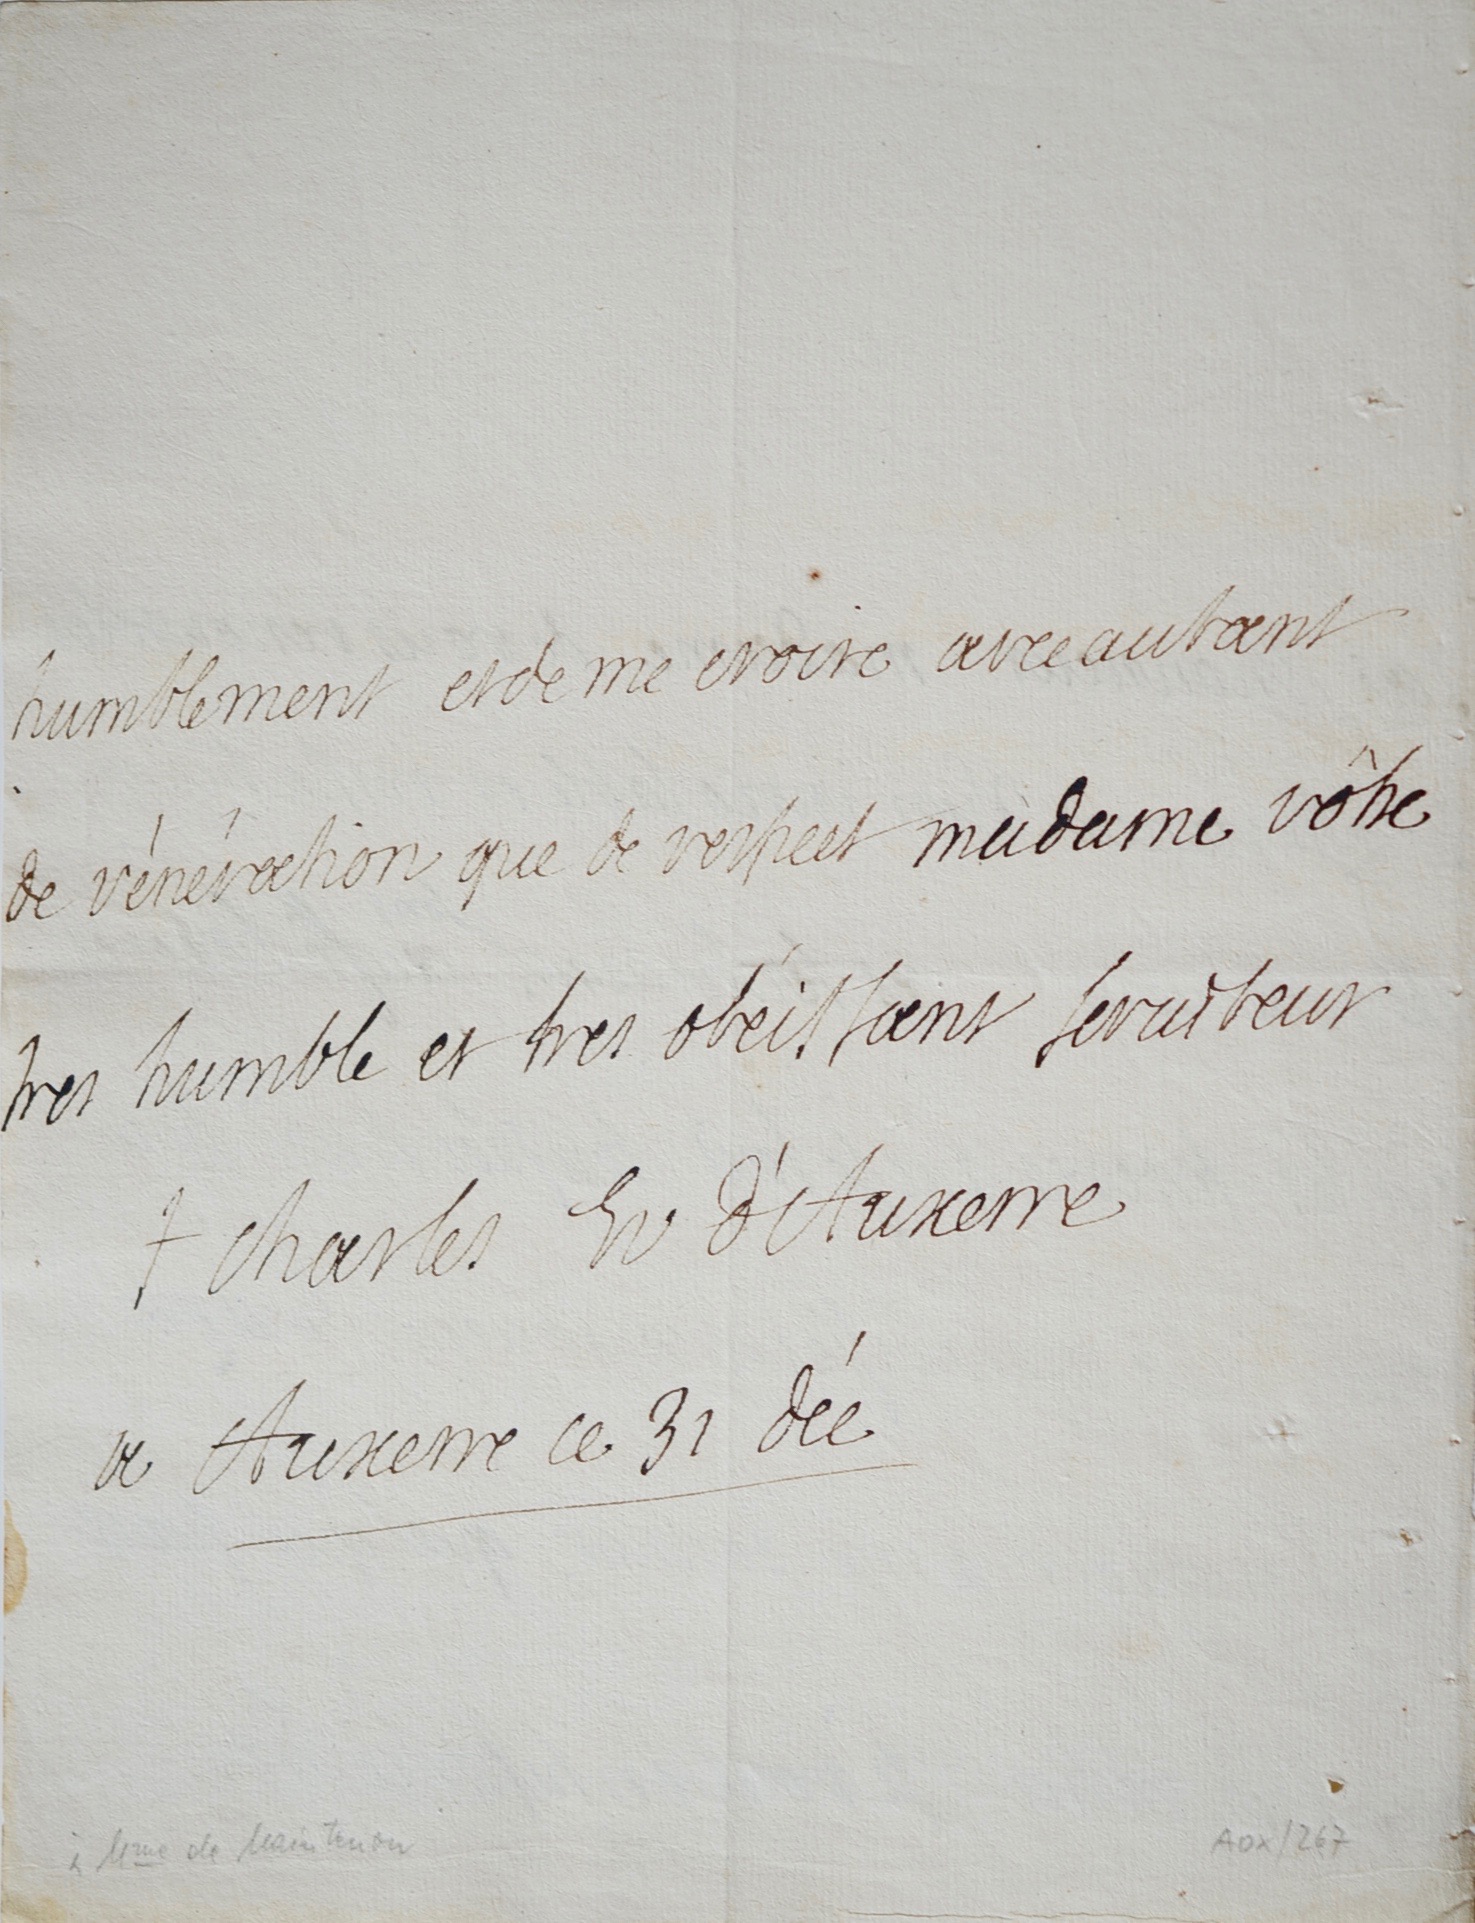 humblement et de me croire avec autant
de vénération que de respect madame vôtre
tres humble et tres obéissant serviteur
† Charles Ev d'Auxerre
a Auxerre ce 31 déc
à Mme de Maintenon